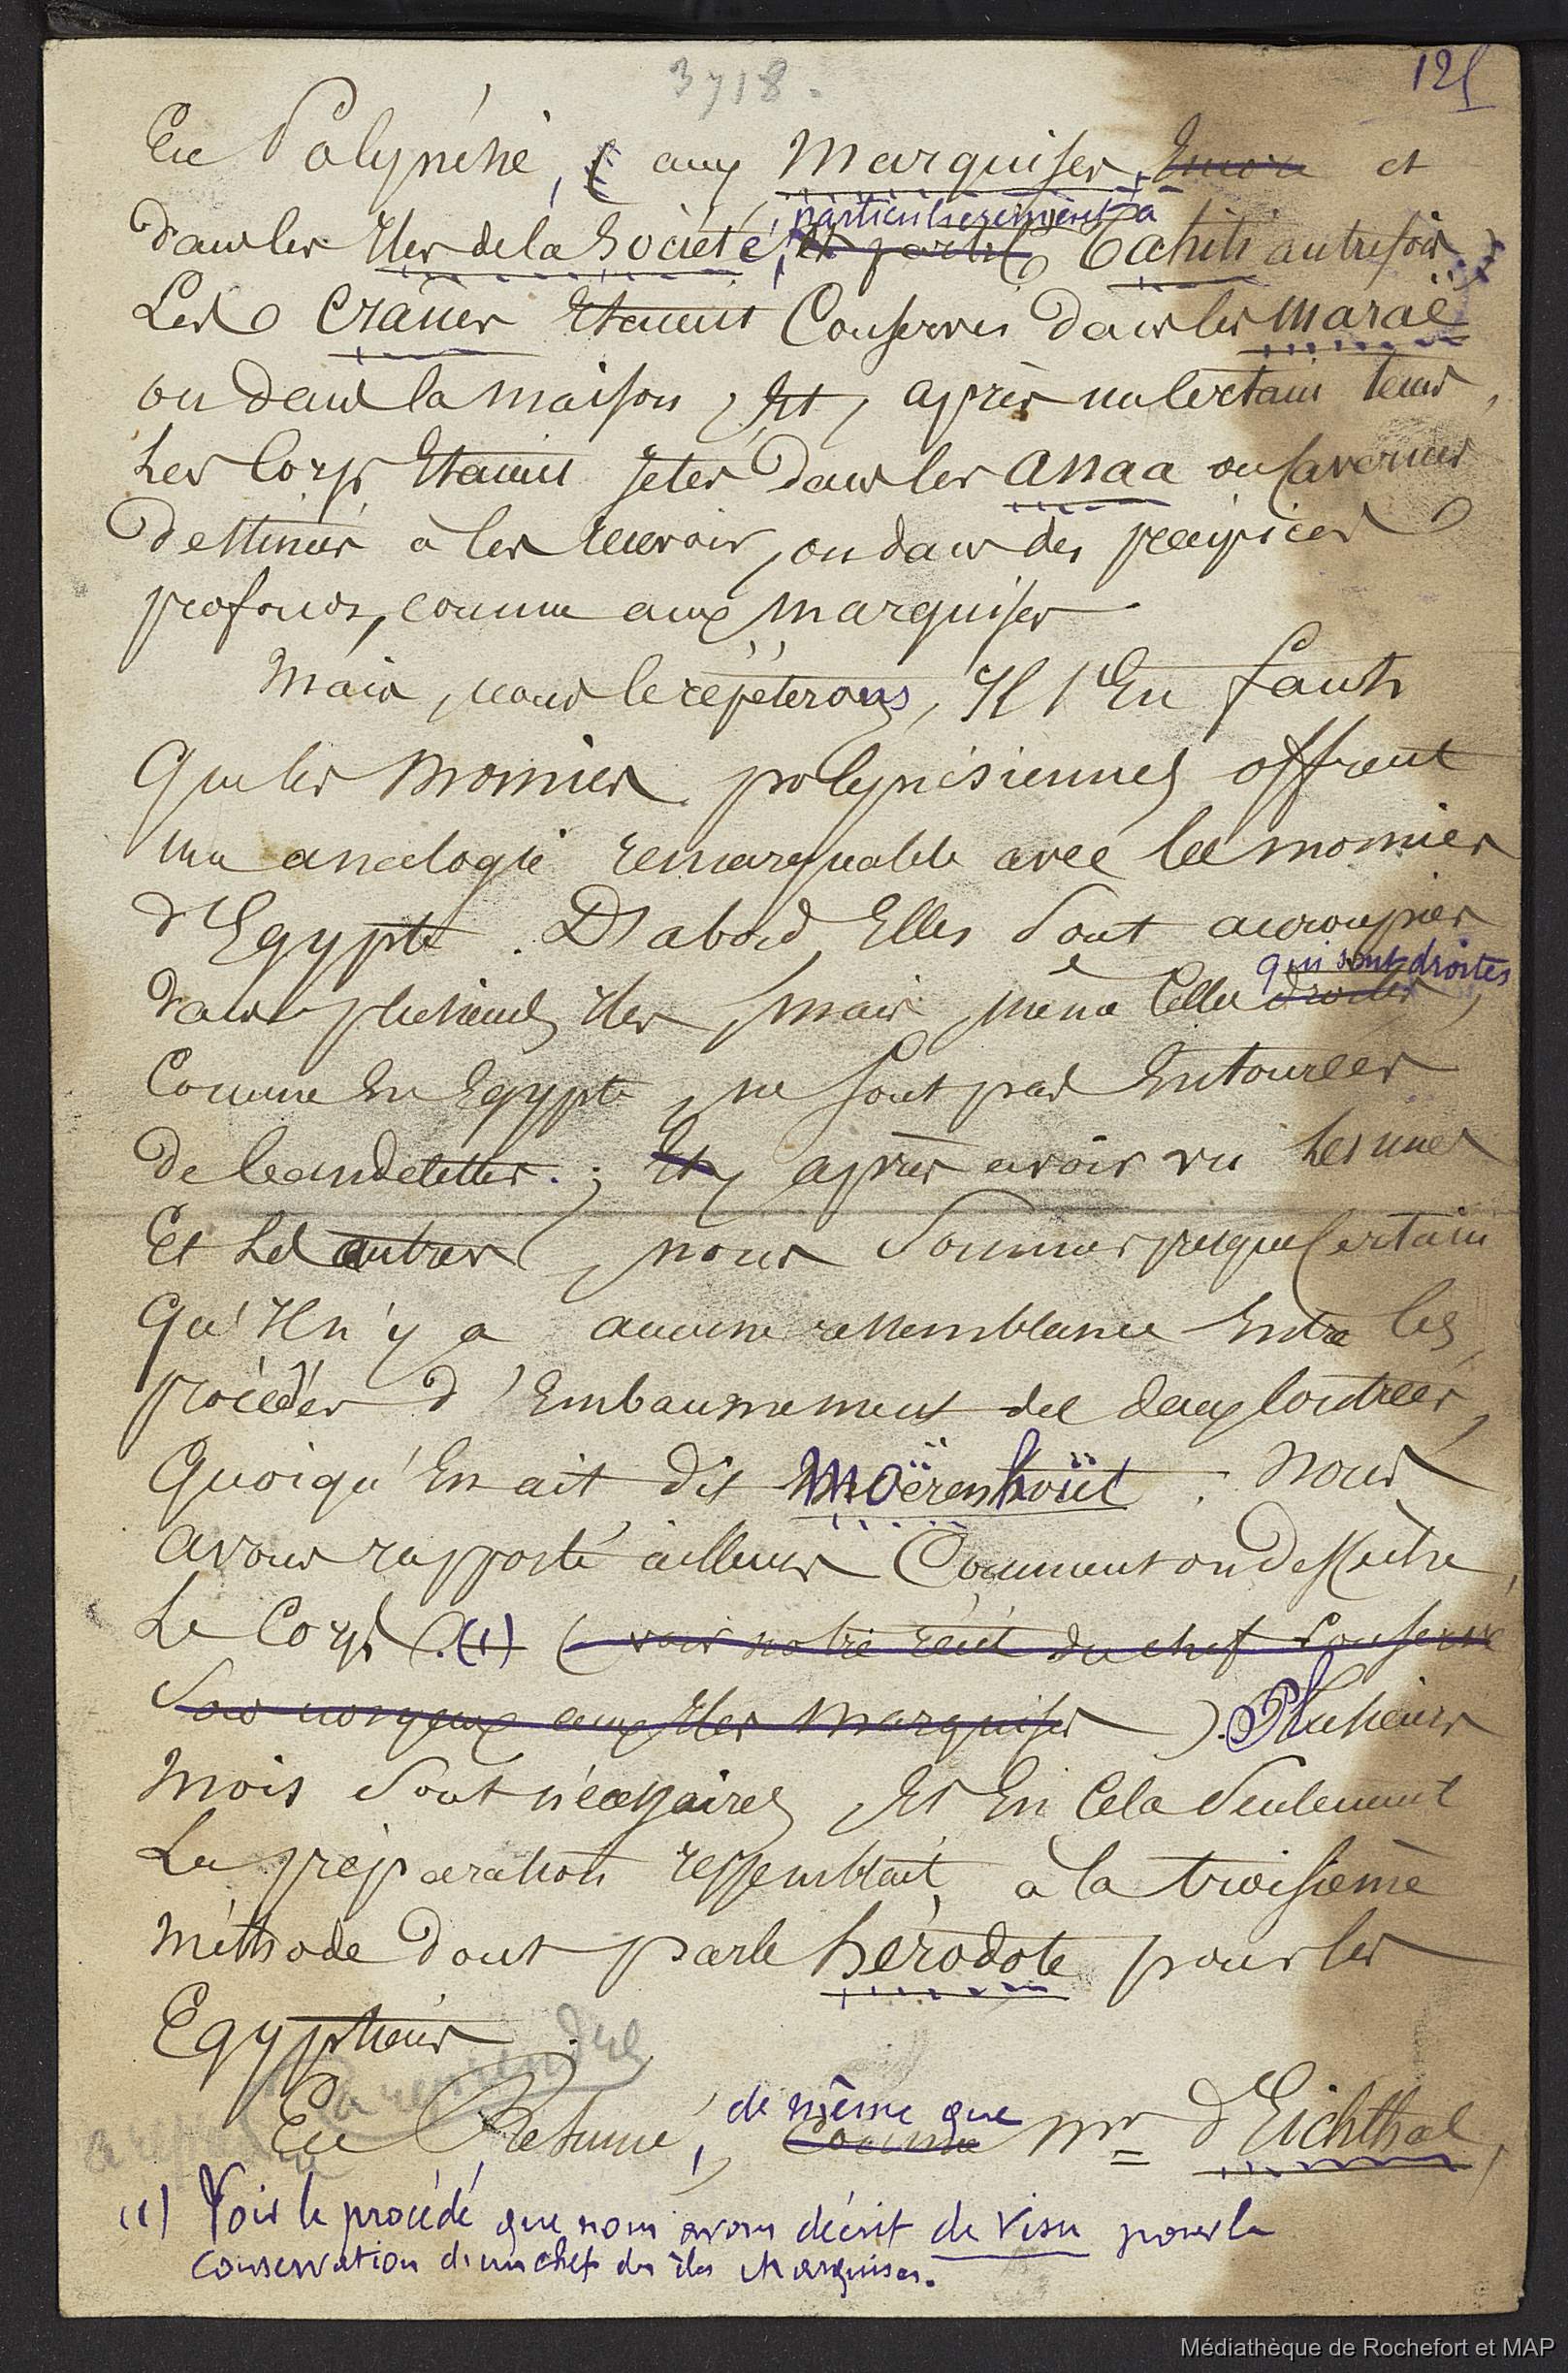 3718.
125
En Polynésie, ( aux Marquises, Encore et
particulièrement à
dans les Iles de la Société, et partic Tahiti autrefois )
Les crânes Etaient Conservés dans les maraë
ou dans la maison, Et, après un certain tems,
Les Corps Etaient jetés dans les anaa ou Cavernes
destinées à les recevoir, ou dans des précipices
profonds, comme aux marquises
Mais, nous le répéterons, Il s'En faut
Que les momies polynésiennes offrent
une analogie remarquable avec les momies
d'Egypte. D'abord, Elles sont accroupies
qui sont droites
dans plusieurs Iles, mais même Celles droites,
Comme En Egypte, ne sont pas Entourées
de bandelettes. ; Et, après avoir vu les unes
Et les autres, nous sommes presque Certain
Qu'Il n'y a aucune ressemblance Entre les
procédés d'Embaumement des deux Contrées,
Quoiqu'En ait dit Moërenhoüt. Nous
avons rapporté ailleurs Comment on dessèche
Le Corps .(1) ( voir notre récit du chef Conservé
sous nos yeux aux Iles Marquises ). Plusieurs
mois sont nécessaires, Et En Cela Seulement
La préparation ressemblait à la troisième
méthode dont parle hérodote pour les
Egyptiens.
a reprendre
En Résumé, de même que Comme Mr d'Eichthal,
(1) Voir le procédé que nous avons décrit de visu pour la
conservation d'un chef des îles Marquises.
Médiathèque de Rochefort et MAP